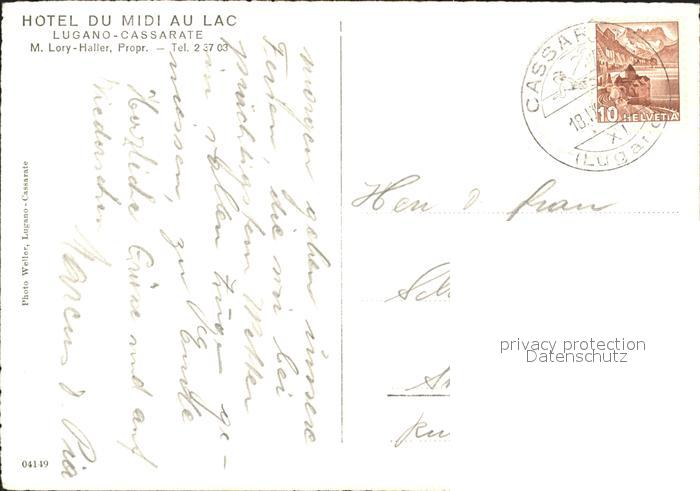 HOTEL DU MIDI AU LAC
LUGANO-CASSARATE
M. Lory-Haller, Propr. — Tel. 2 37 03
morgen gehen unsere
Ferien, die wir bei
prächtigstem Wetter
in vollen Zügen ge-
niessen, zu Ende
Herzliche Grüsse und auf
Wiedersehen
Marcus &
Photo Weller, Lugano-Cassarate
04149
CASSAR
18.
XI
(Lugano)
10 HELVETIA
Herr & Frau
privacy protection
Datenschutz